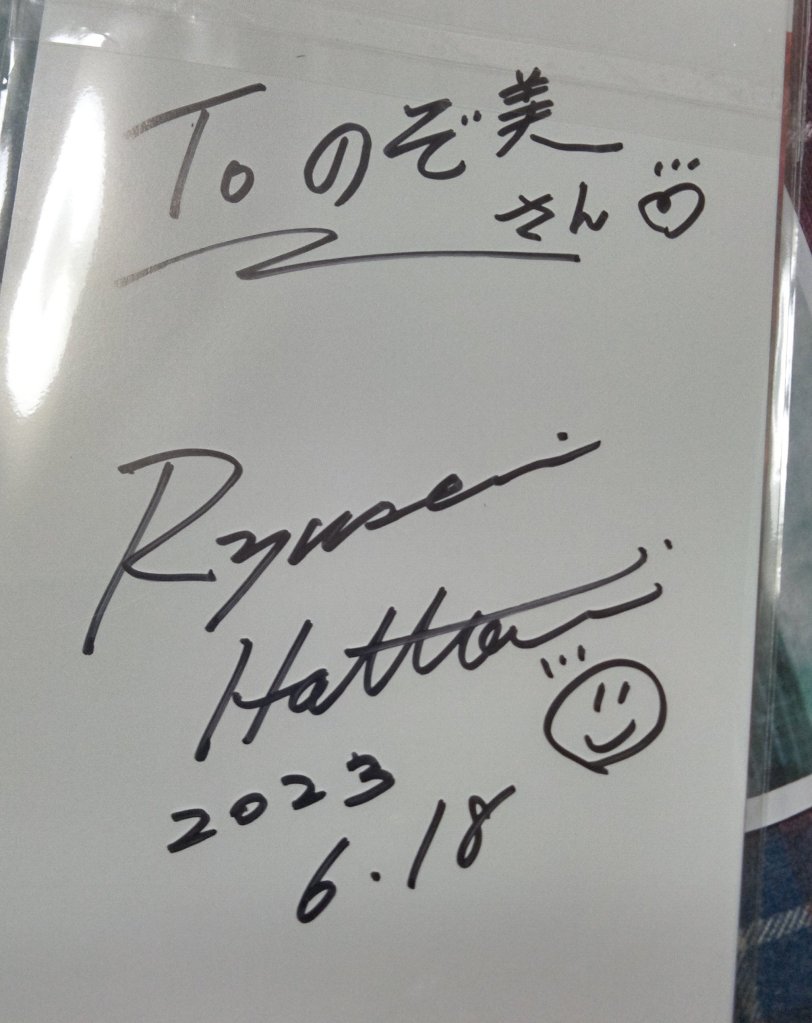 To のぞ美
さん
Ryusei
Hattori
2023
6.18